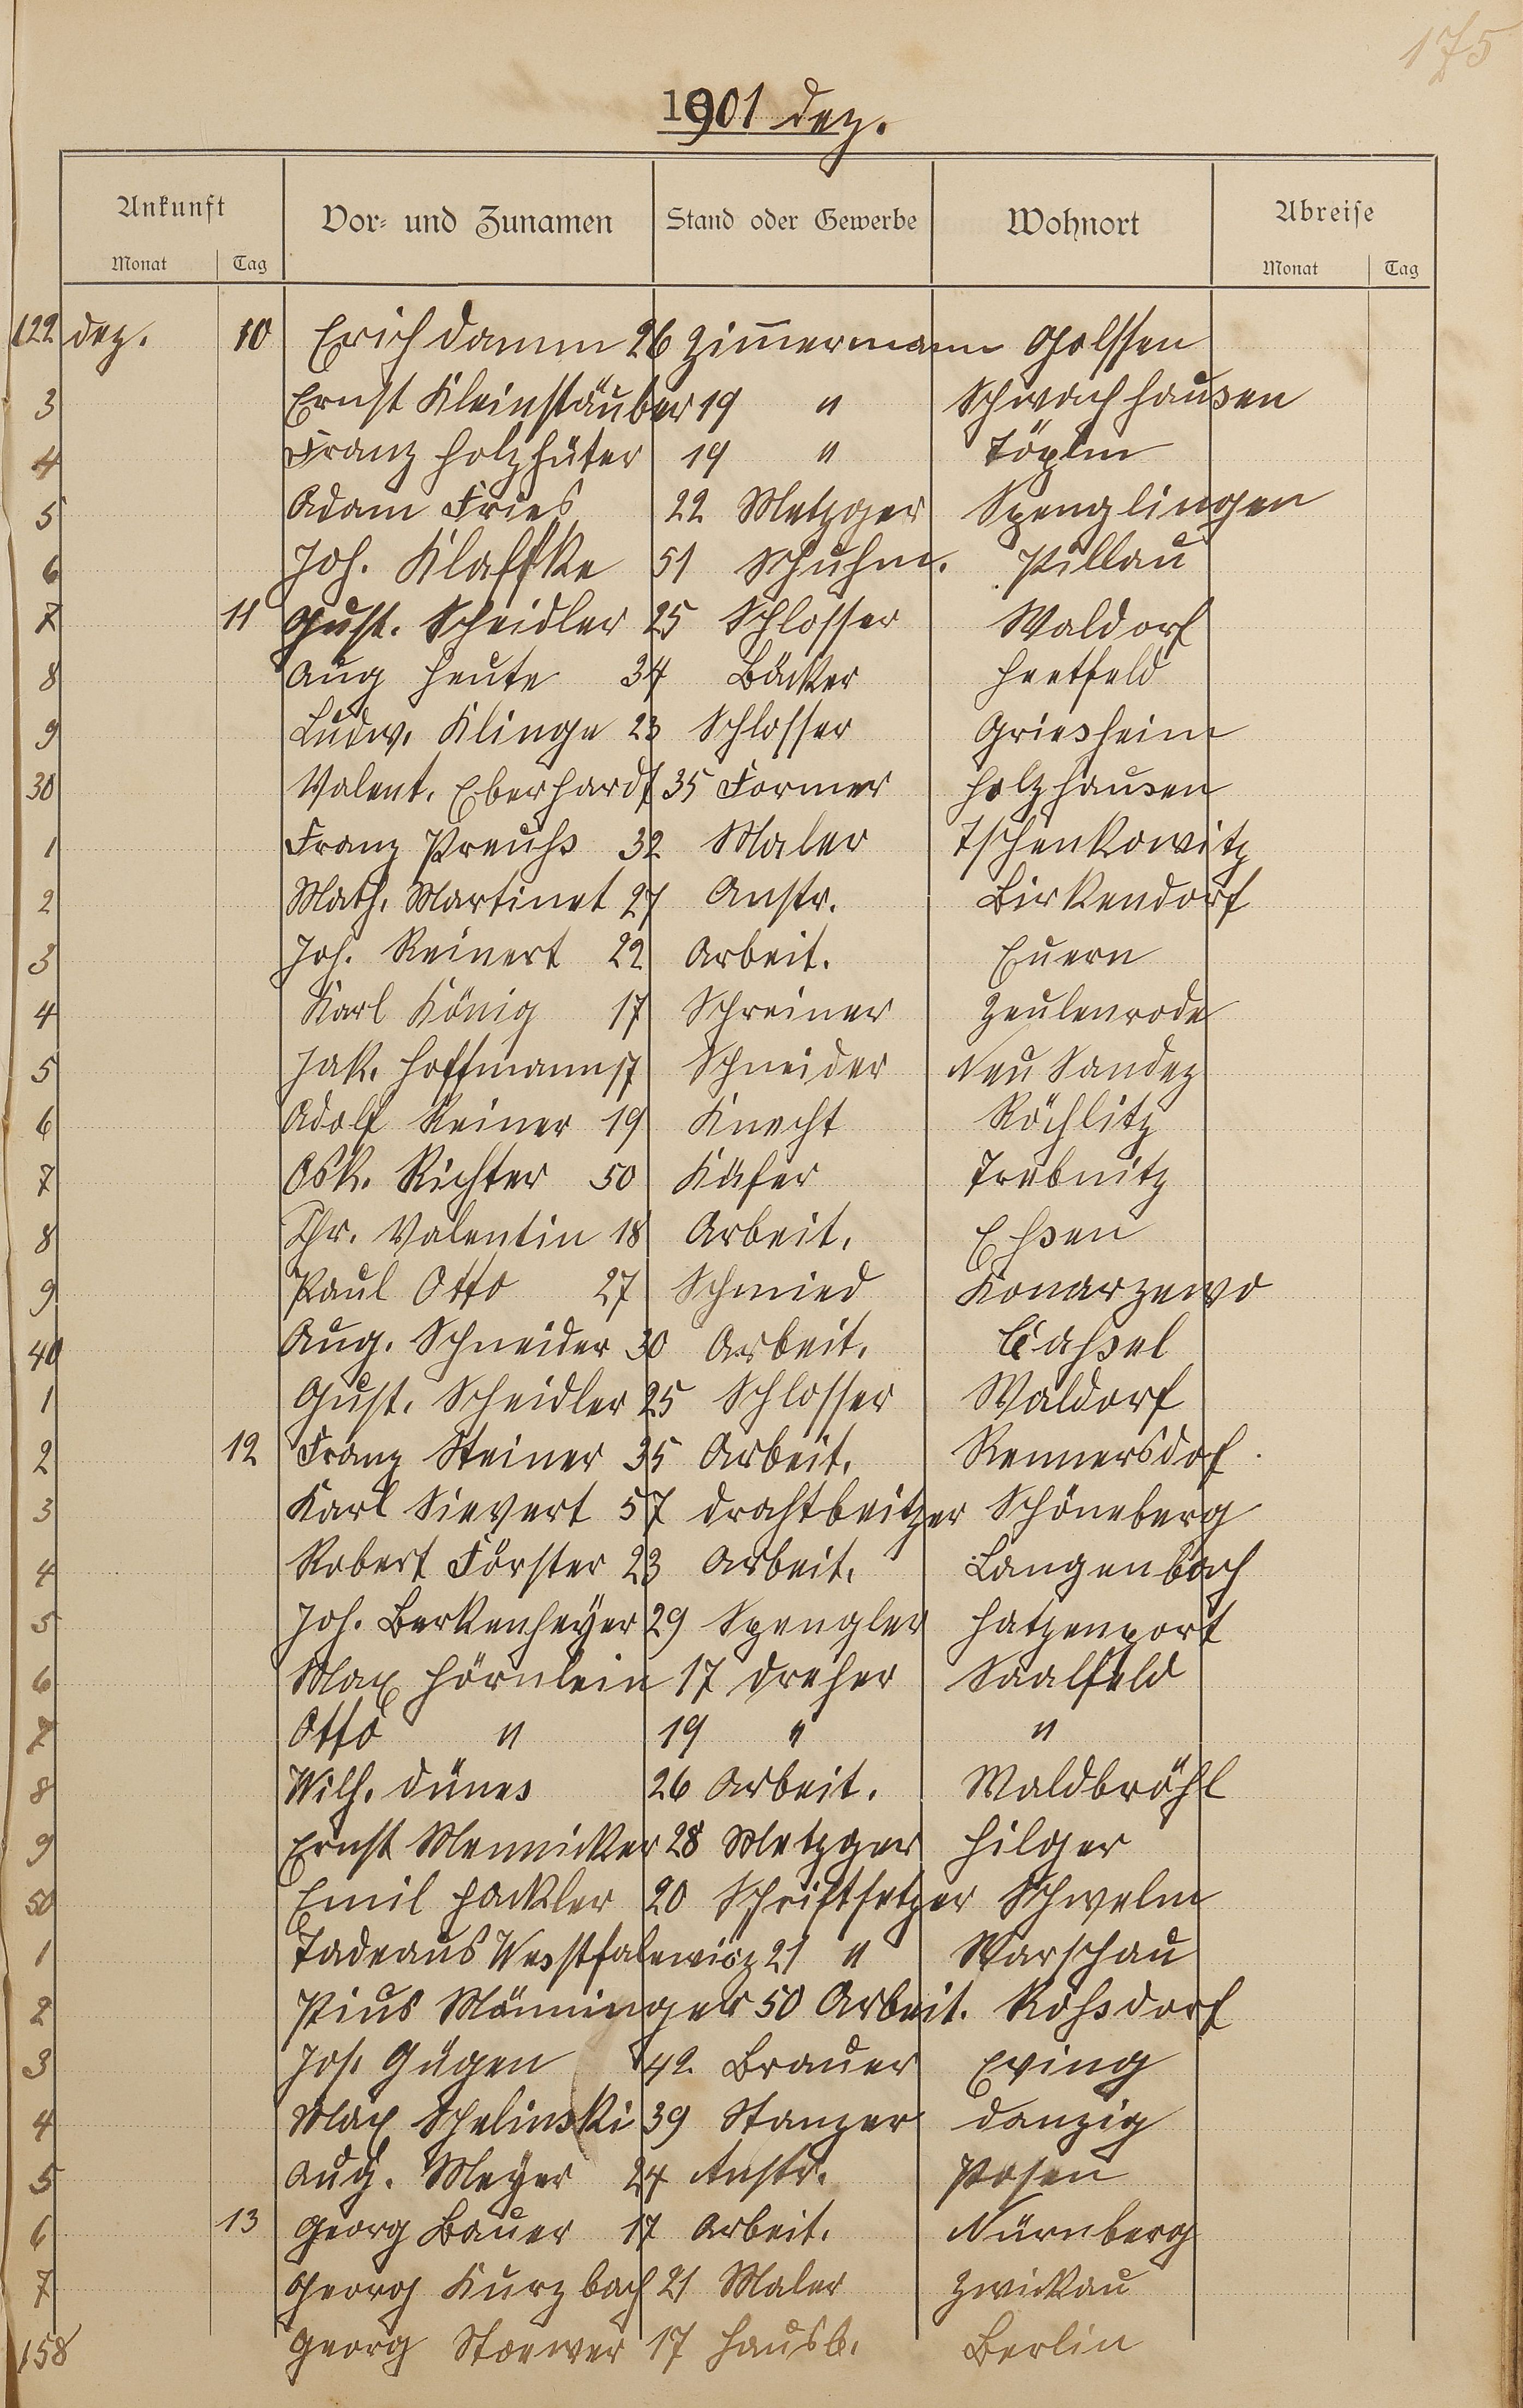 175
1901 Dez.
Ankunft Vor- und Zunamen Stand oder Gewerbe Wohnort Abreise
Monat Tag Monat Tag
122 Dez. 10 Erich Damm 26 Zimmermann Golssen
3 Ernst Kleinstäuber 19 " Schwachhausen
4 Franz Holzhüter 19 " Töplin
5 Adam Fries 22 Metzger Spenglingen
6 Joh. Klaffke 51 Schuhm. Pillau
7 11 Gust. Scheidler 25 Schlosser Waldorf
8 Aug Heute 34 Bäcker Heetfeld
9 Ludw. Klinge 23 Schlosser Griesheim
30 Valent. Eberhardt 35 Former Holzhausen
1 Franz Preuhs 32 Maler Tschenkowitz
2 Math. Martinet 27 Anstr. Birkendorf
3 Joh. Reinert 22 Arbeit. Euern
4 Karl König 17 Schreiner Zeulenrode
5 Jak. Hoffmann 17 Schneider Neu Sandez
6 Adolf Reiner 19 Knecht Röchlitz
7 Osk. Richter 50 Küfer Trebnitz
8 Chr. Valentin 18 Arbeit. Ehsen
9 Paul Otto 27 Schmied Konarzewo
40 Aug. Schneider 30 Arbeit. Cahsel
1 Gust. Scheidler 25 Schlosser Waldorf
2 12 Franz Steiner 35 Arbeit. Rennersdof
3 Karl Sievert 57 Drahtbeitzer Schöneberg
4 Robert Förster 23 Arbeit. Langenbach
5 Joh. Berkenheyer 29 Spengler Hatzenport
6 Max Hörnlein 17 Dreher Saalfeld
7 Otto " 19 " "
8 Wilh. Dünes 26 Arbeit. Waldbröhl
9 Ernst Mennicker 28 Metzger Hilger
50 Emil Hackler 20 Schriftsetzer Schwelm
1 Tadeaus Westfalewicz 21 " Warschau
2 Pius Männinger 50 Arbeit. Rohsdorf
3 Jos. Gügen 42 Brauer Eving
4 Max Schelinski 39 Stanzer Danzig
5 Aug. Meyer 24 Anstr. Posen
6 13 Georg Bauer 17 Arbeit. Nürnberg
7 Georg Kurzbach 21 Maler Zwickau
158 Georg Stoewer 17 Hausb. Berlin